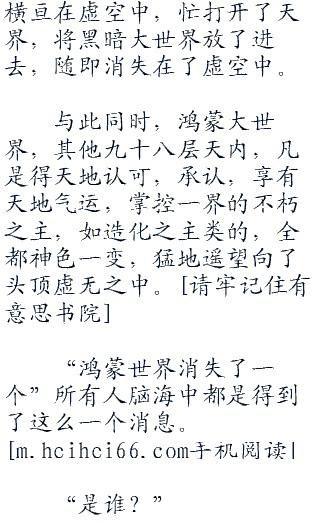 横亘在虚空中，忙打开了天
界，将黑暗大世界放了进
去，随即消失在了虚空中。
与此同时，鸿蒙大世
界，其他九十八层天内，凡
是得天地认可，承认，享有
天地气运，掌控一界的不朽
之主，如造化之主类的，全
都神色一变，猛地遥望向了
头顶虚无之中。[请牢记住有
意思书院]
“鸿蒙世界消失了一
个”所有人脑海中都是得到
了这么一个消息。
[m.hcihci66.com手机阅读|
“是谁？”